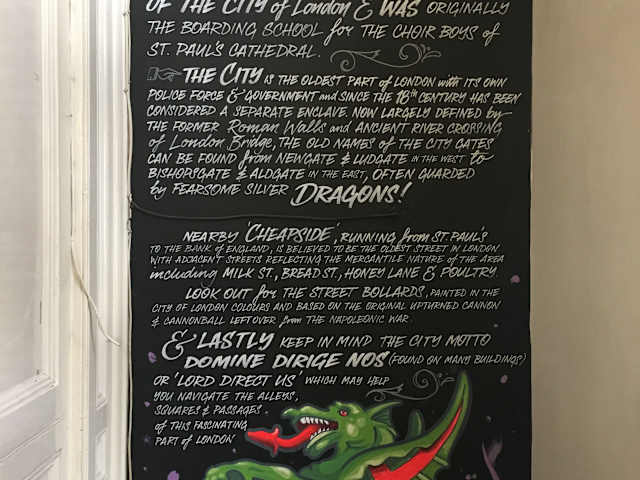 OF THE CITY of London & WAS ORIGINALLY
THE BOARDING SCHOOL for THE CHOIR BOYS of
ST. PAUL'S CATHEDRAL.
THE CITY IS THE OLDEST PART of LONDON with ITS OWN
POLICE FORCE & GOVERNMENT and SINCE THE 18th CENTURY HAS BEEN
CONSIDERED A SEPARATE ENCLAVE. NOW LARGELY DEFINED by
THE FORMER Roman Walls and ANCIENT RIVER CROSSING
of London Bridge, THE OLD NAMES of THE CITY GATES
CAN BE FOUND from NEWGATE & LUDGATE IN THE WEST to
BISHOPSGATE & ALDGATE IN THE EAST, OFTEN GUARDED
by FEARSOME SILVER DRAGONS!
NEARBY 'CHEAPSIDE', RUNNING from ST. PAUL'S
TO THE BANK of ENGLAND, IS BELIEVED TO BE THE OLDEST STREET IN LONDON
WITH ADJACENT STREETS REFLECTING THE MERCANTILE NATURE of THE AREA
including MILK ST., BREAD ST., HONEY LANE & POULTRY.
LOOK OUT for THE STREET BOLLARDS, PAINTED IN THE
CITY OF LONDON COLOURS AND BASED ON THE ORIGINAL UPTURNED CANNON
& CANNONBALL LEFTOVER from THE NAPOLEONIC WAR.
& LASTLY KEEP IN MIND THE CITY MOTTO
DOMINE DIRIGE NOS (FOUND ON MANY BUILDINGS?)
OR 'LORD DIRECT US' WHICH MAY HELP
YOU NAVIGATE THE ALLEYS,
SQUARES & PASSAGES
of THIS FASCINATING
PART of LONDON